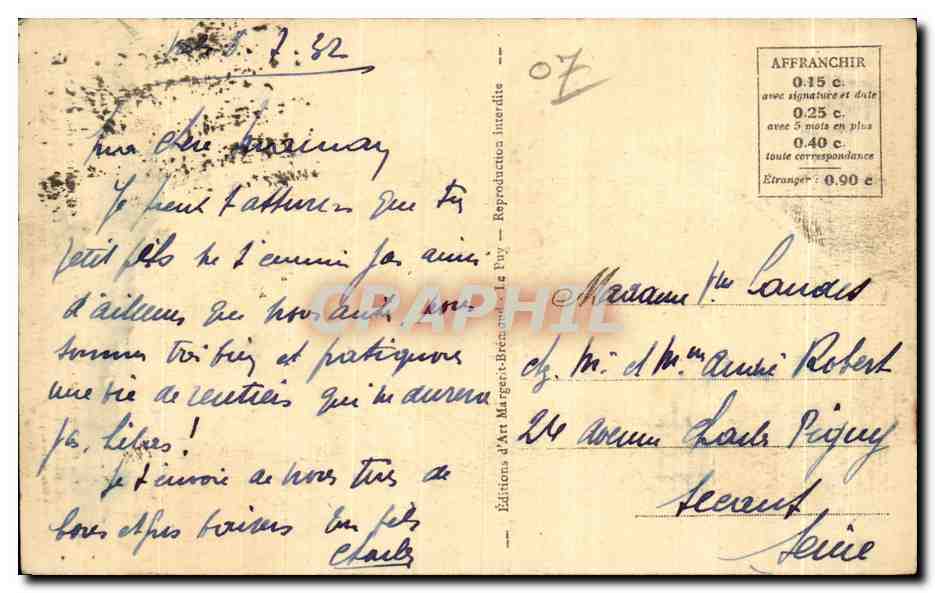 7.32
Ma chère maman
Je peux t'assurer que ton
petit fils ne s'ennuie pas ainsi
d'ailleurs que nous aussi, nous
sommes très bien et pratiquons
une vie de rentiers qui ne durera
pas, hélas!
Je t'envoie de nous tous de
bons et gros baisers Ton fils
Charles
Éditions d'Art Margerit-Brémond - Le Puy — Reproduction interdite
07
AFFRANCHIR
0.15 c.
avec signature et date
0.25 c.
avec 5 mots en plus
0.40 c.
toute correspondance
Étranger : 0.90 c
Madame Vve Landes
chz. Mr. et Mme André Robert
24 avenue Charles Péguy
Seine
CPAPHIL